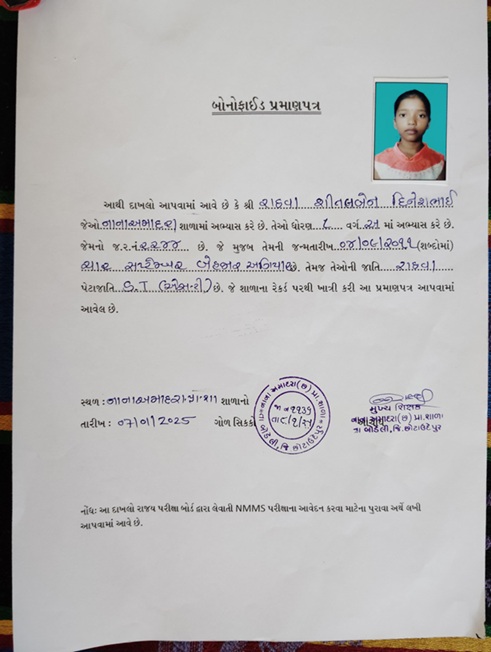 બોનોફાઈડ પ્રમાણપત્ર
આથી દાખલો આપવામાં આવે છે કે શ્રી રાઠવા શીતલબેન દિનેશભાઈ
જેઓ નાનાઅમાદરા શાળામાં અભ્યાસ કરે છે. તેઓ ધોરણ ૮ વર્ગ અ માં અભ્યાસ કરે છે.
જેમનો જ.ર.નં ૨૨૭૪ છે. જે મુજબ તેમની જન્મતારીખ ૦૪/૦૯/૨૦૧૧ (શબ્દોમાં)
ચાર સપ્ટેમ્બર બેહજાર અગિયાર છે. તેમજ તેઓની જાતિ રાઠવા
પેટાજાતિ S.T (એસ.ટી) છે. જે શાળાના રેકર્ડ પરથી ખાત્રી કરી આ પ્રમાણપત્ર આપવામાં
આવેલ છે.
સ્થળ : નાનાઅમાદરા પ્રા. શા શાળાનો
તારીખ : ૦૭/૦૧/2025 ગોળ સિક્કો
મુખ્ય શિક્ષક
નાના અમાદરા(છ) પ્રા.શાળા
તા બોડેલી, જિ.છોટાઉદેપુર
નોંધ: આ દાખલો રાજય પરીક્ષા બોર્ડ દ્વારા લેવાતી NMMS પરીક્ષાના આવેદન કરવા માટેના પુરાવા અર્થે લખી
આપવામાં આવે છે.